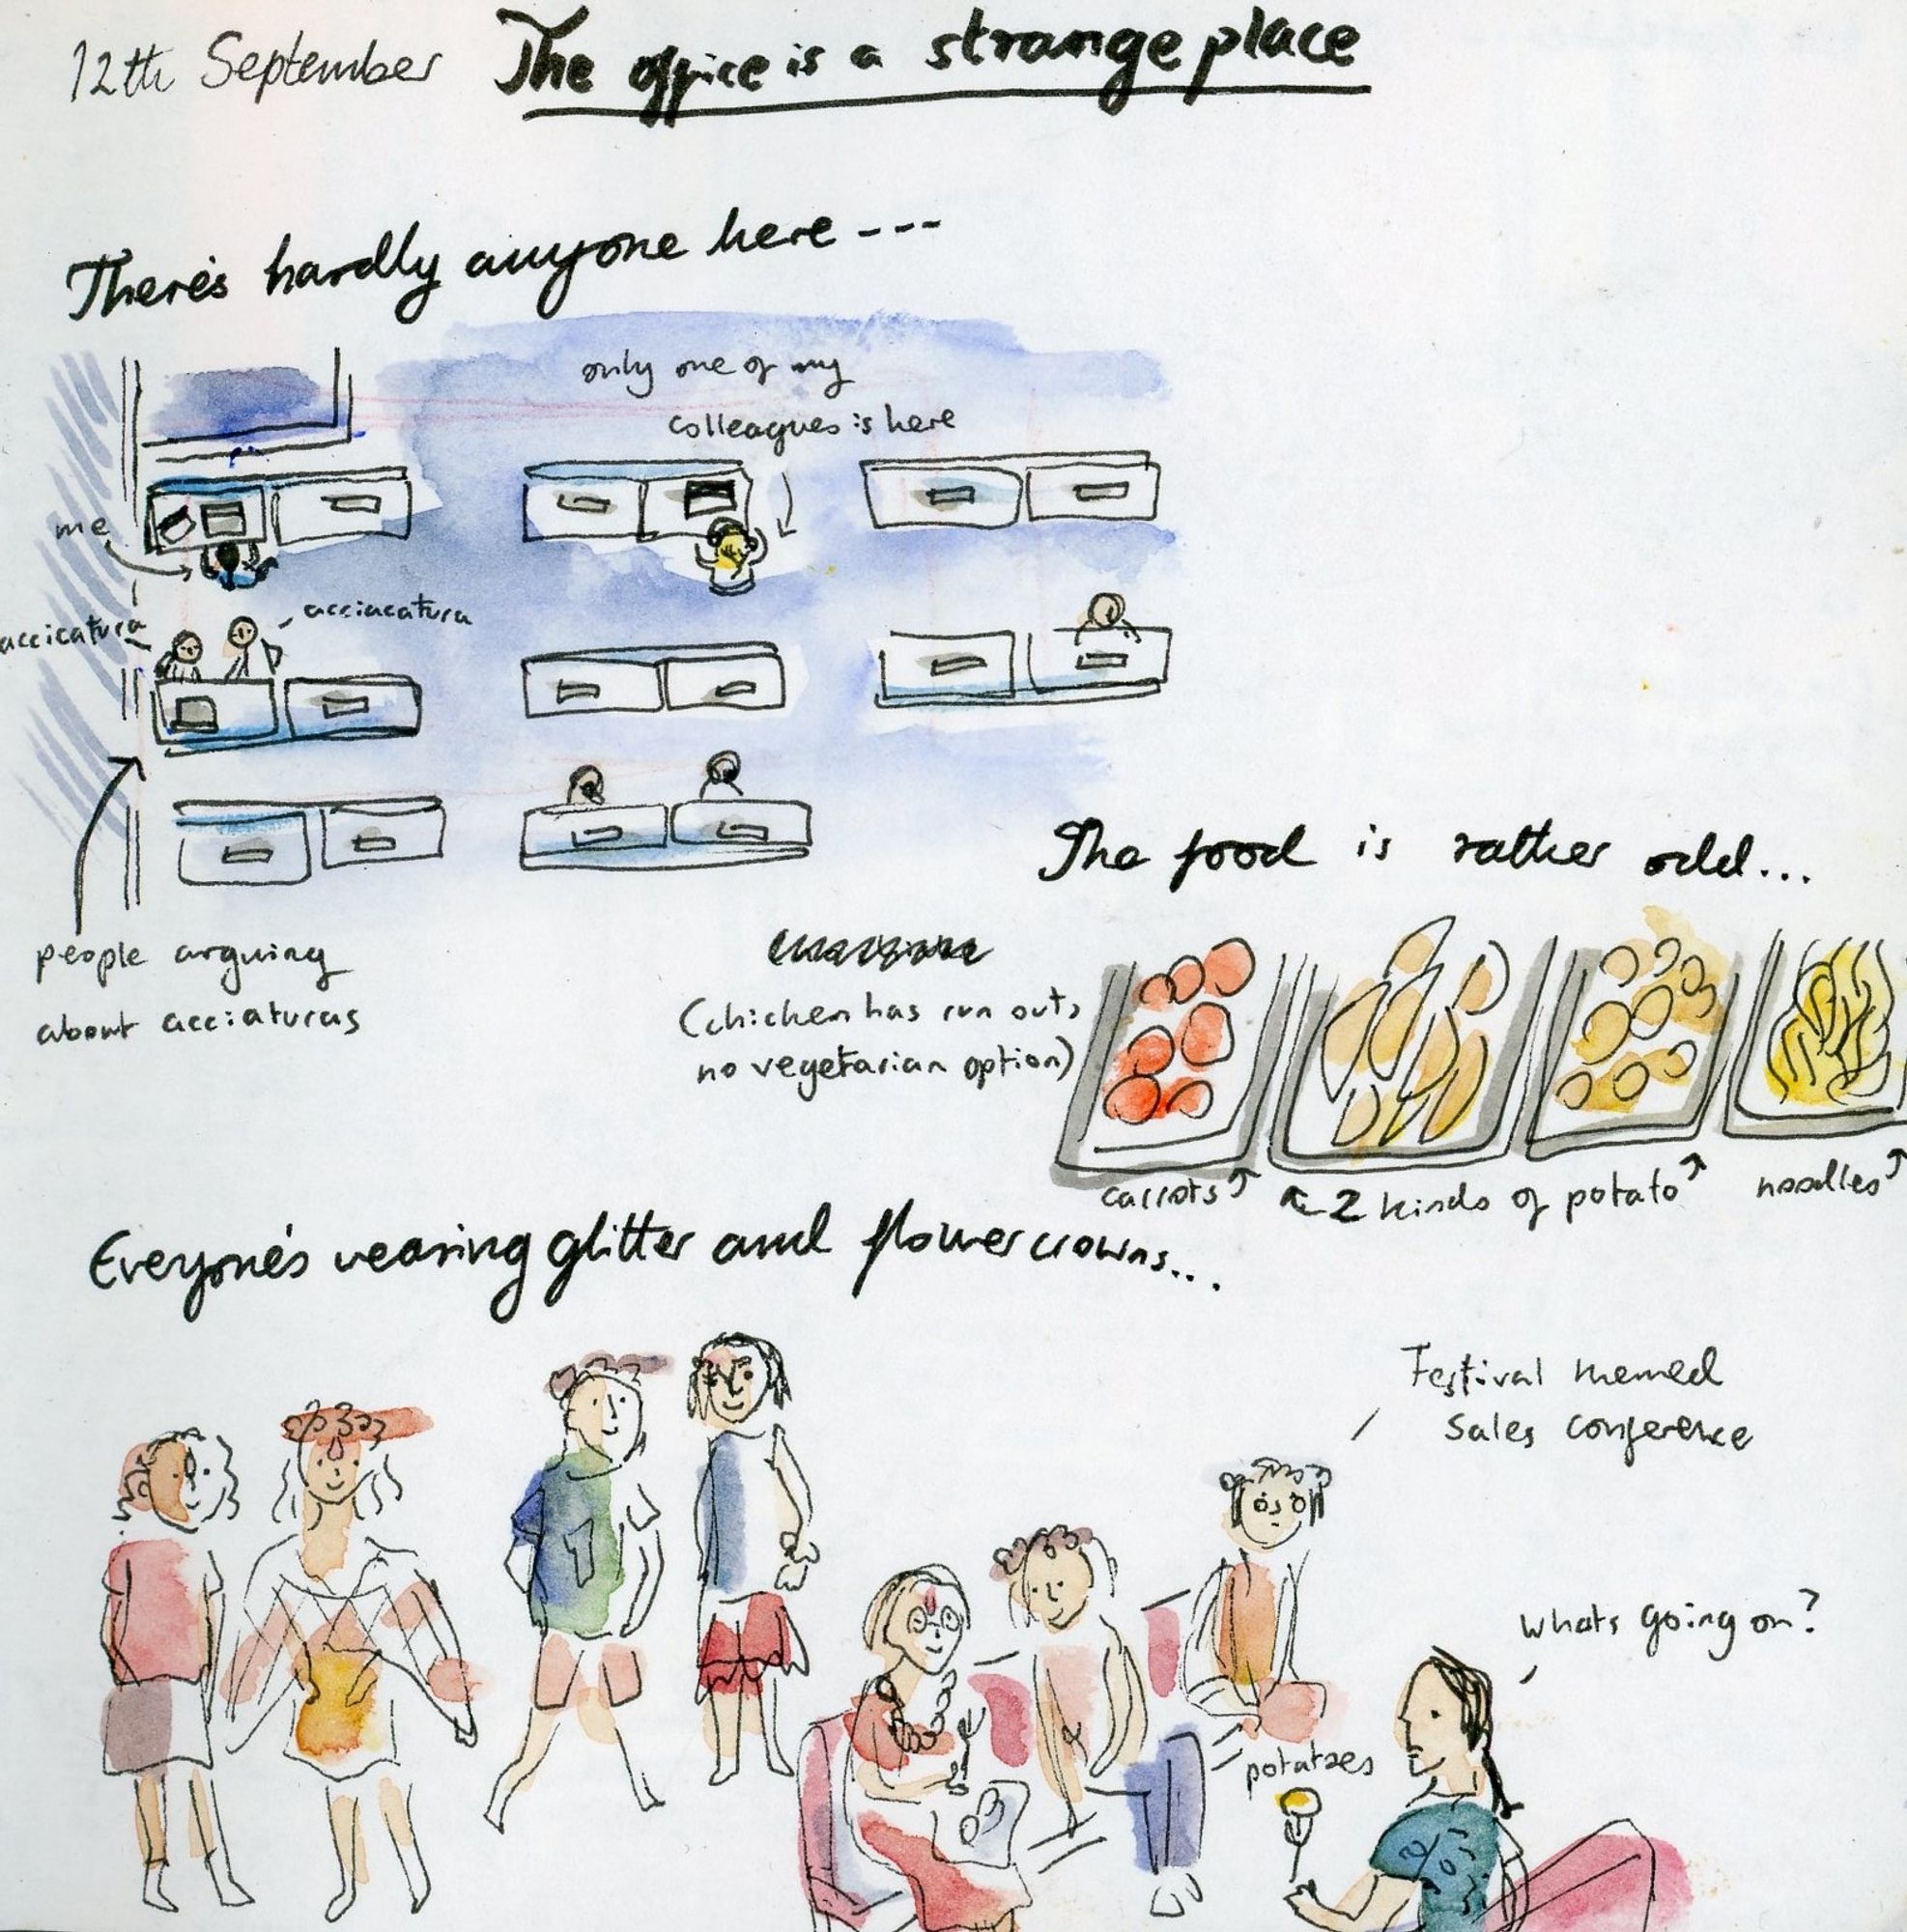 12th September The office is a strange place
There's hardly anyone here ---
only one of my
colleagues is here
me
acciacatura
accicatura
people arguing
about acciaturas
The food is rather odd...
(chicken has run out,
no vegetarian option)
carrots 2 kinds of potato noodles
Everyone's wearing glitter and flower crowns...
Festival themed
Sales conference
whats going on?
potatoes